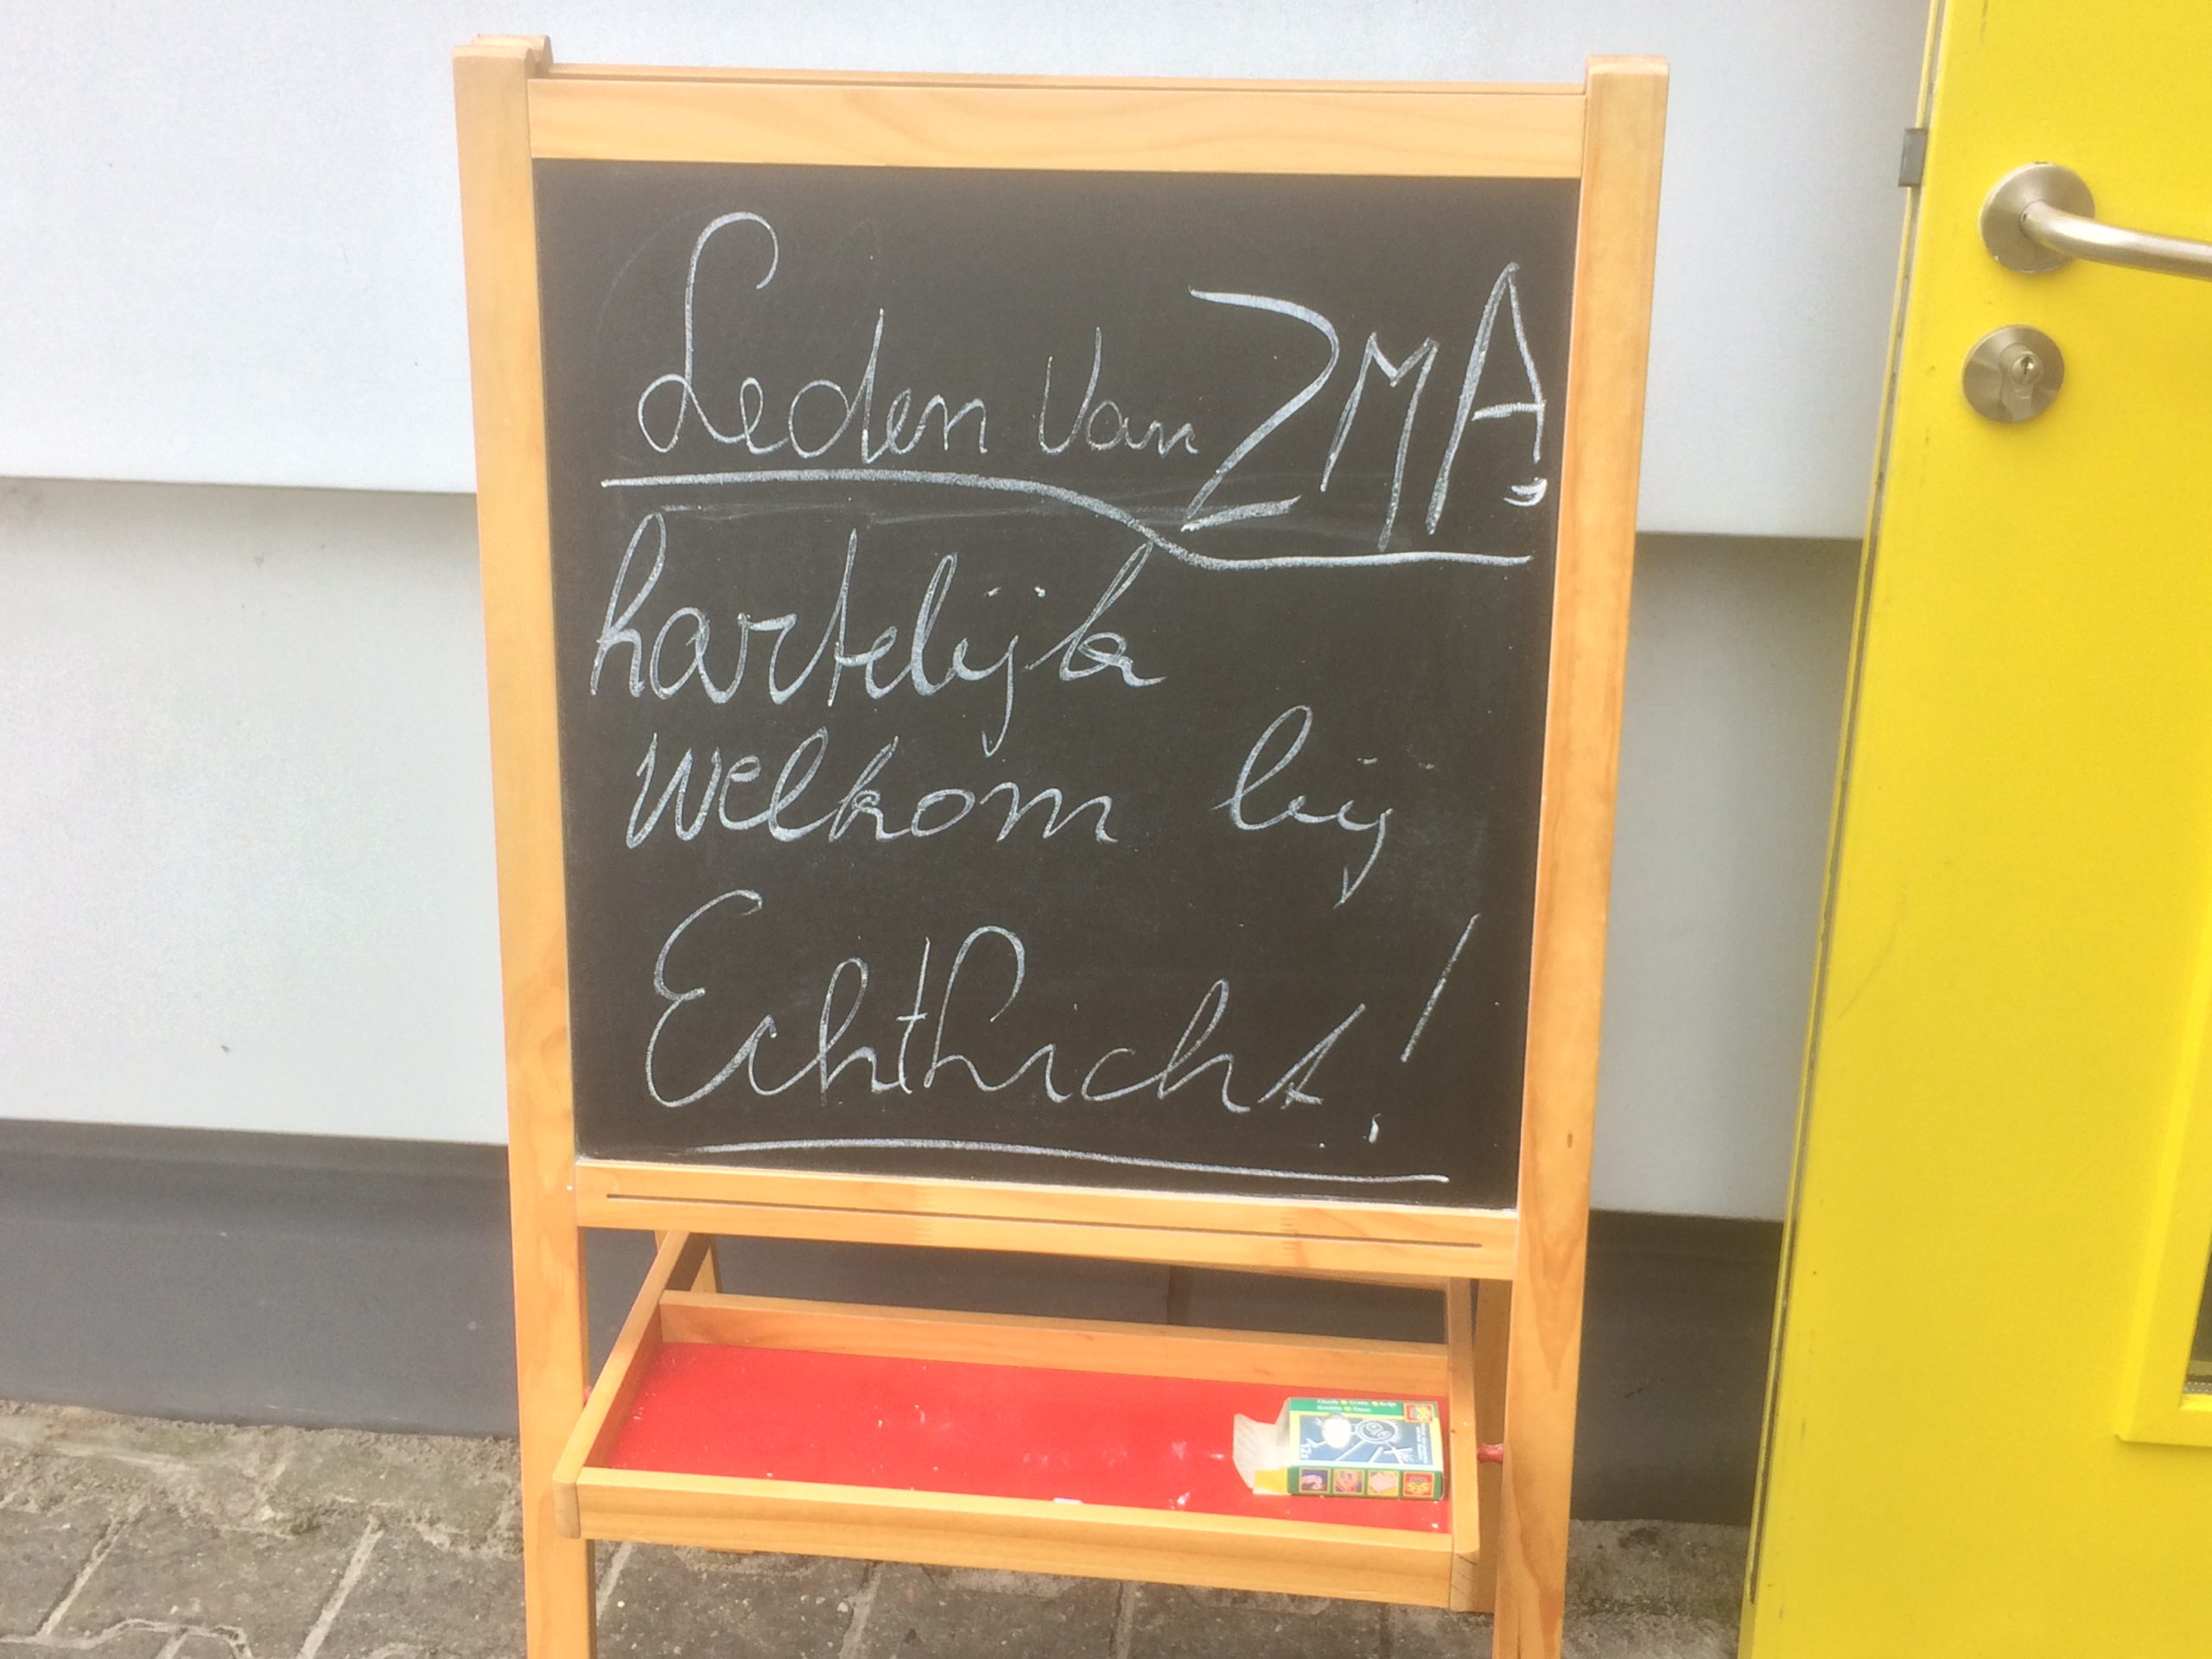 Leden van ZMA:
hartelijk
welkom bij
EchtLicht!
SES